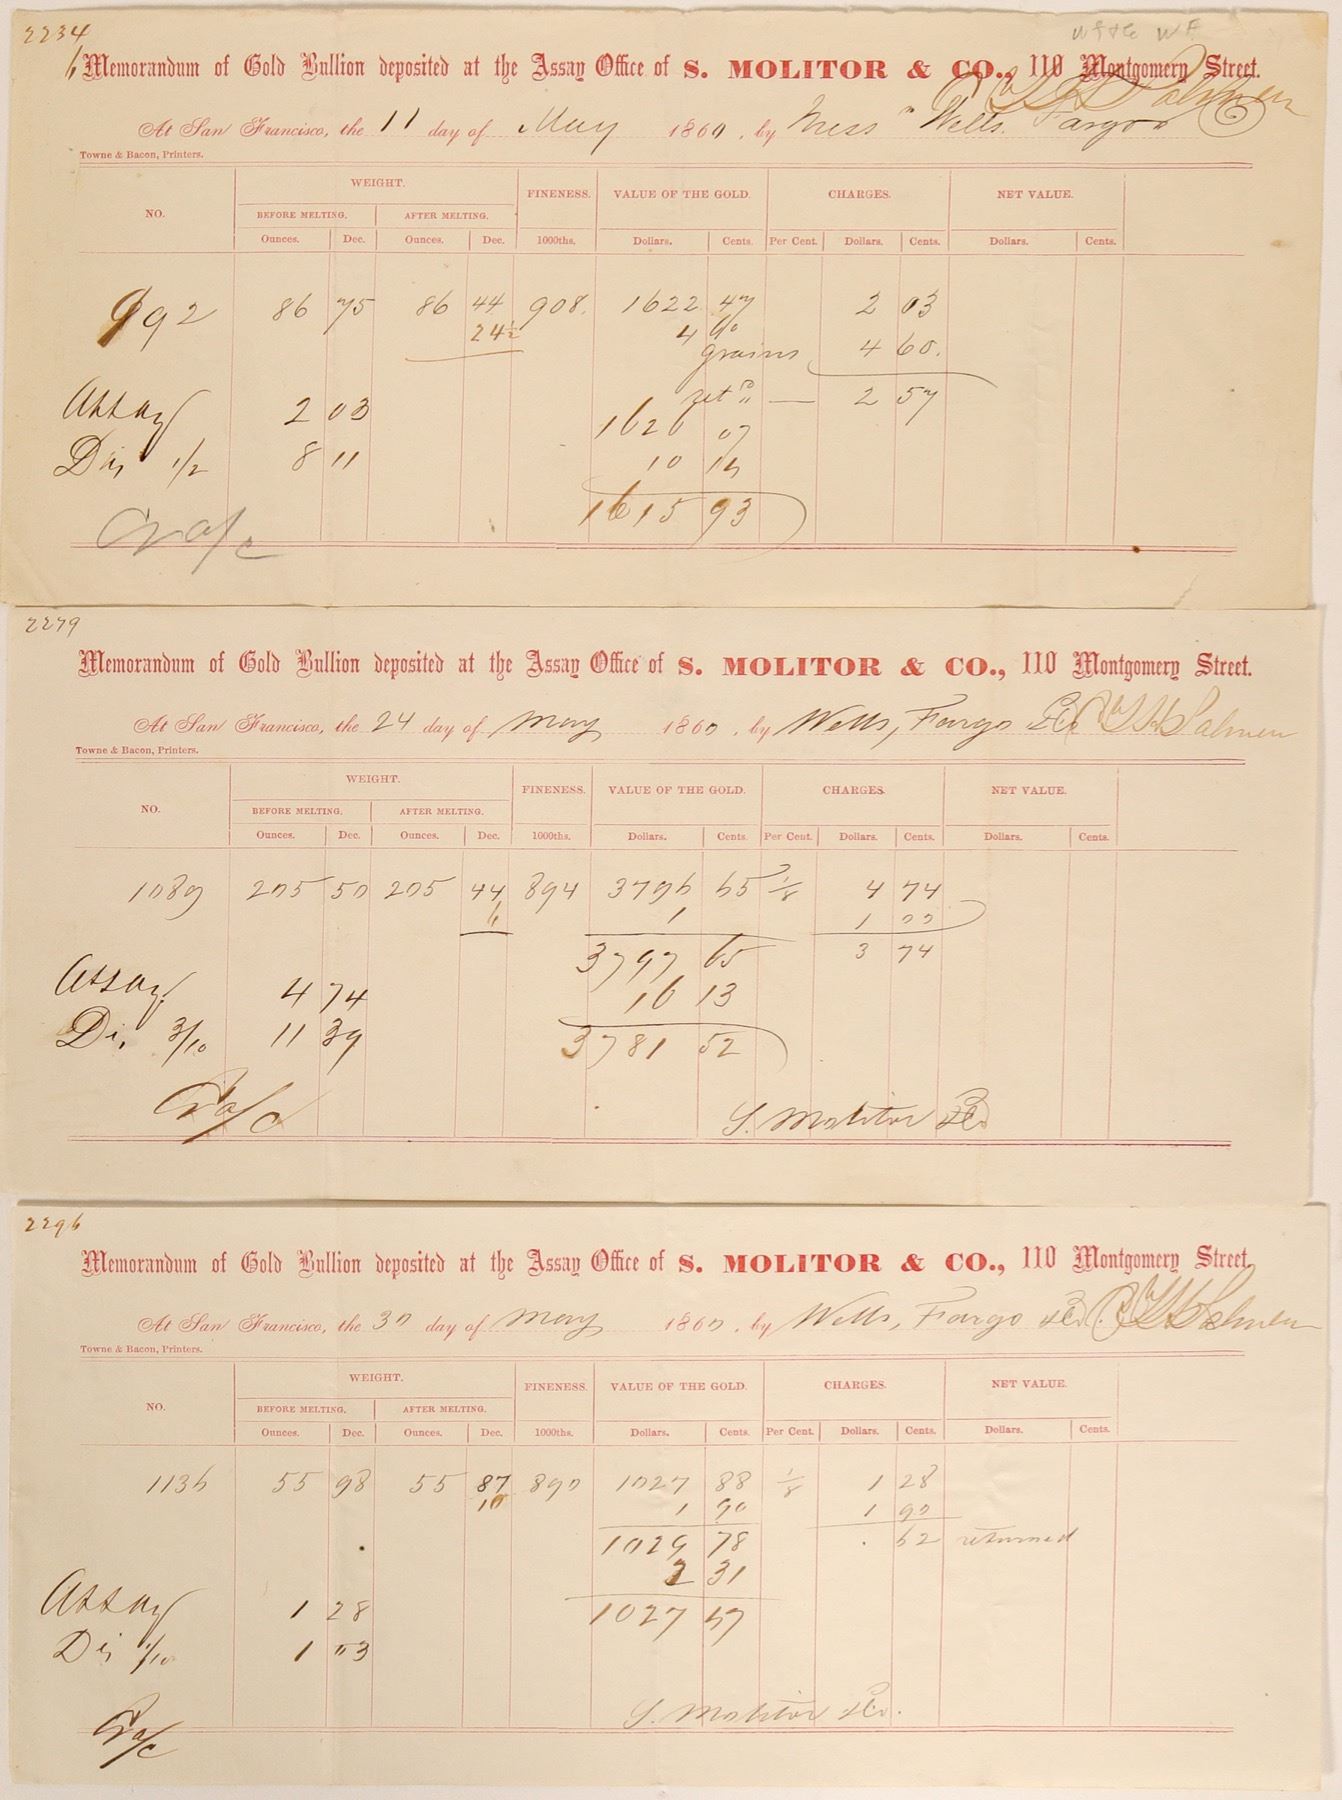 2234
Memorandum of Gold Bullion deposited at the Assay Office of S. MOLITOR & CO., 110 Montgomery Street.
At San Francisco, the 11 day of May 1860, by Mess " Wells. Fargo
Towne & Bacon, Printers.
NO. WEIGHT. FINENESS. VALUE OF THE GOLD. CHARGES. NET VALUE.
BEFORE MELTING. AFTER MELTING.
Ounces. Dec. Ounces. Dec. 1000ths. Dollars. Cents. Per Cent. Dollars. Cents. Dollars. Cents.
992 86 75 86 44 908. 1622 47 2 03
24½ 4 60
grains 4 60.
Assay 2 03 2 57
1626 07
Dis 1/2 8 11 10 14
1615 93
Cr a/c
2279
Memorandum of Gold Bullion deposited at the Assay Office of S. MOLITOR & CO., 110 Montgomery Street.
At San Francisco, the 24 day of May 1860, by Wells, Fargo & Co
Towne & Bacon, Printers.
NO. WEIGHT. FINENESS. VALUE OF THE GOLD. CHARGES. NET VALUE.
BEFORE MELTING. AFTER MELTING.
Ounces. Dec. Ounces. Dec. 1000ths. Dollars. Cents. Per Cent. Dollars. Cents. Dollars. Cents.
1089 205 50 205 44 894 3796 65 1/8 4 74
6 1 1 00
3797 65 3 74
Assay 4 74 16 13
Dis 3/10 11 39 3781 52
Cr a/c S. Molitor & Co
2296
Memorandum of Gold Bullion deposited at the Assay Office of S. MOLITOR & CO., 110 Montgomery Street.
At San Francisco, the 30 day of May 1860, by Wells, Fargo & Co.
Towne & Bacon, Printers.
NO. WEIGHT. FINENESS. VALUE OF THE GOLD. CHARGES. NET VALUE.
BEFORE MELTING. AFTER MELTING.
Ounces. Dec. Ounces. Dec. 1000ths. Dollars. Cents. Per Cent. Dollars. Cents. Dollars. Cents.
1136 55 98 55 87 890 1027 88 1/8 1 28
10 1 90 1 90
1029 78 . 62 returned
2 31
Assay 1 28 1027 47
Dis 1/10 1 03
S. Molitor & Co.
Cr a/c